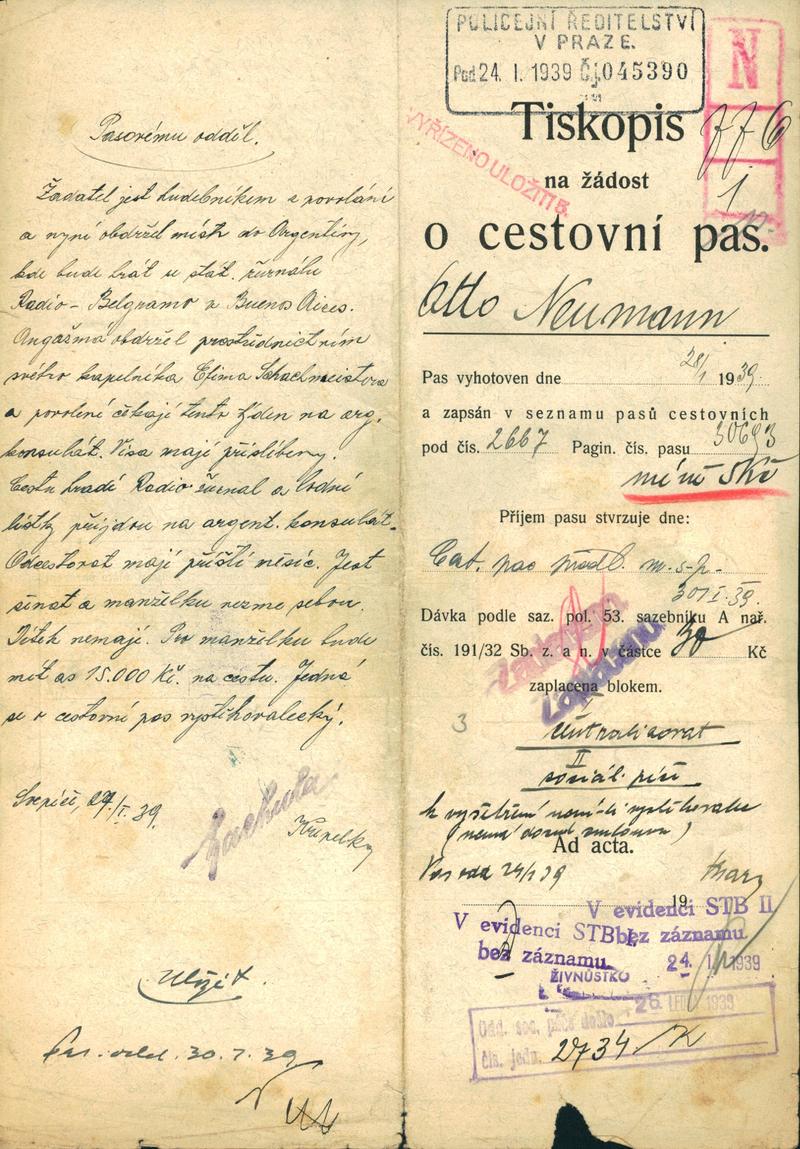 Pasovému odděl.
Žadatel jest hudebníkem z povolání
a nyní obdržel místo do Argentiny,
kde bude hrát u stát. žurnálu
Radio-Belgramo v Buenos Aires.
Angažmá obdržel prostřednictvím
svého kapelníka Efima Schachmeistera
a povolení čekají tento týden na arg.
konsulát. Visa mají přislíbeny.
Cestu hradí Radio žurnal a lodní
lístky přijdou na argent. konsulát.
Odcestovat mají příští měsíc. Jest
ženat a manželku vezme sebou.
Dítek nemají. Pro manželku bude
mít as 15.000 Kč. na cestu. Jedná
se o cestovní pas vystěhovalecký.
27./I. 39.
Uložit
30.1.39
POLICEJNÍ ŘEDITELSTVÍ
V PRAZE.
Pod 24. I. 1939 Čj. 045390
N
776
1
VYŘÍZENO ULOŽITI
Tiskopis
na žádost
o cestovní pas.
Otto Neumann
Pas vyhotoven dne 28/1 1939
a zapsán v seznamu pasů cestovních
pod čís. 2667 Pagin. čís. pasu 30693
Příjem pasu stvrzuje dne:
30/I. 39.
Dávka podle saz. pol. 53. sazebníku A nař.
čís. 191/32 Sb. z. a n. v částce Kč
zaplacena blokem.
Zaplaceno
3
I
centralisovat
II
sociál. péči
k vyšetření není-li vystěhovalec
Ad acta.
24/1 39
19
V evidenci STB II
bez záznamu
V evidenci STB I,
bez záznamu
24. I. 1939
ŽIVNŮSTKO
26. LEDNA 1939
Odd. soc. péče došlo
čís. jedn. 2734 K